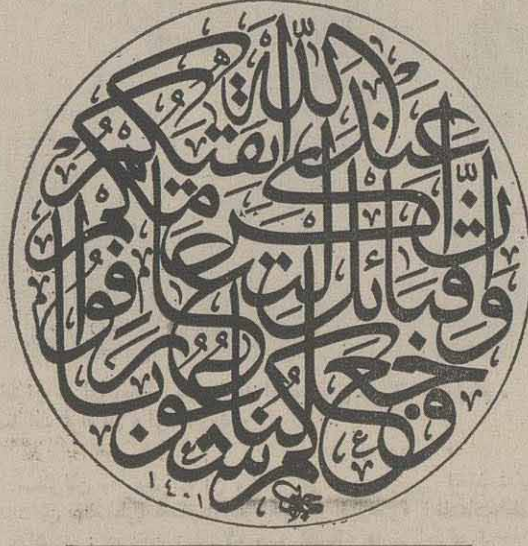 وَجَعَلْنَاكُمْ شُعُوبًا
وَقَبَائِلَ لِتَعَارَفُوا
إِنَّ أَكْرَمَكُمْ
عِنْدَ اللَّهِ أَتْقَاكُمْ
١٤٠١